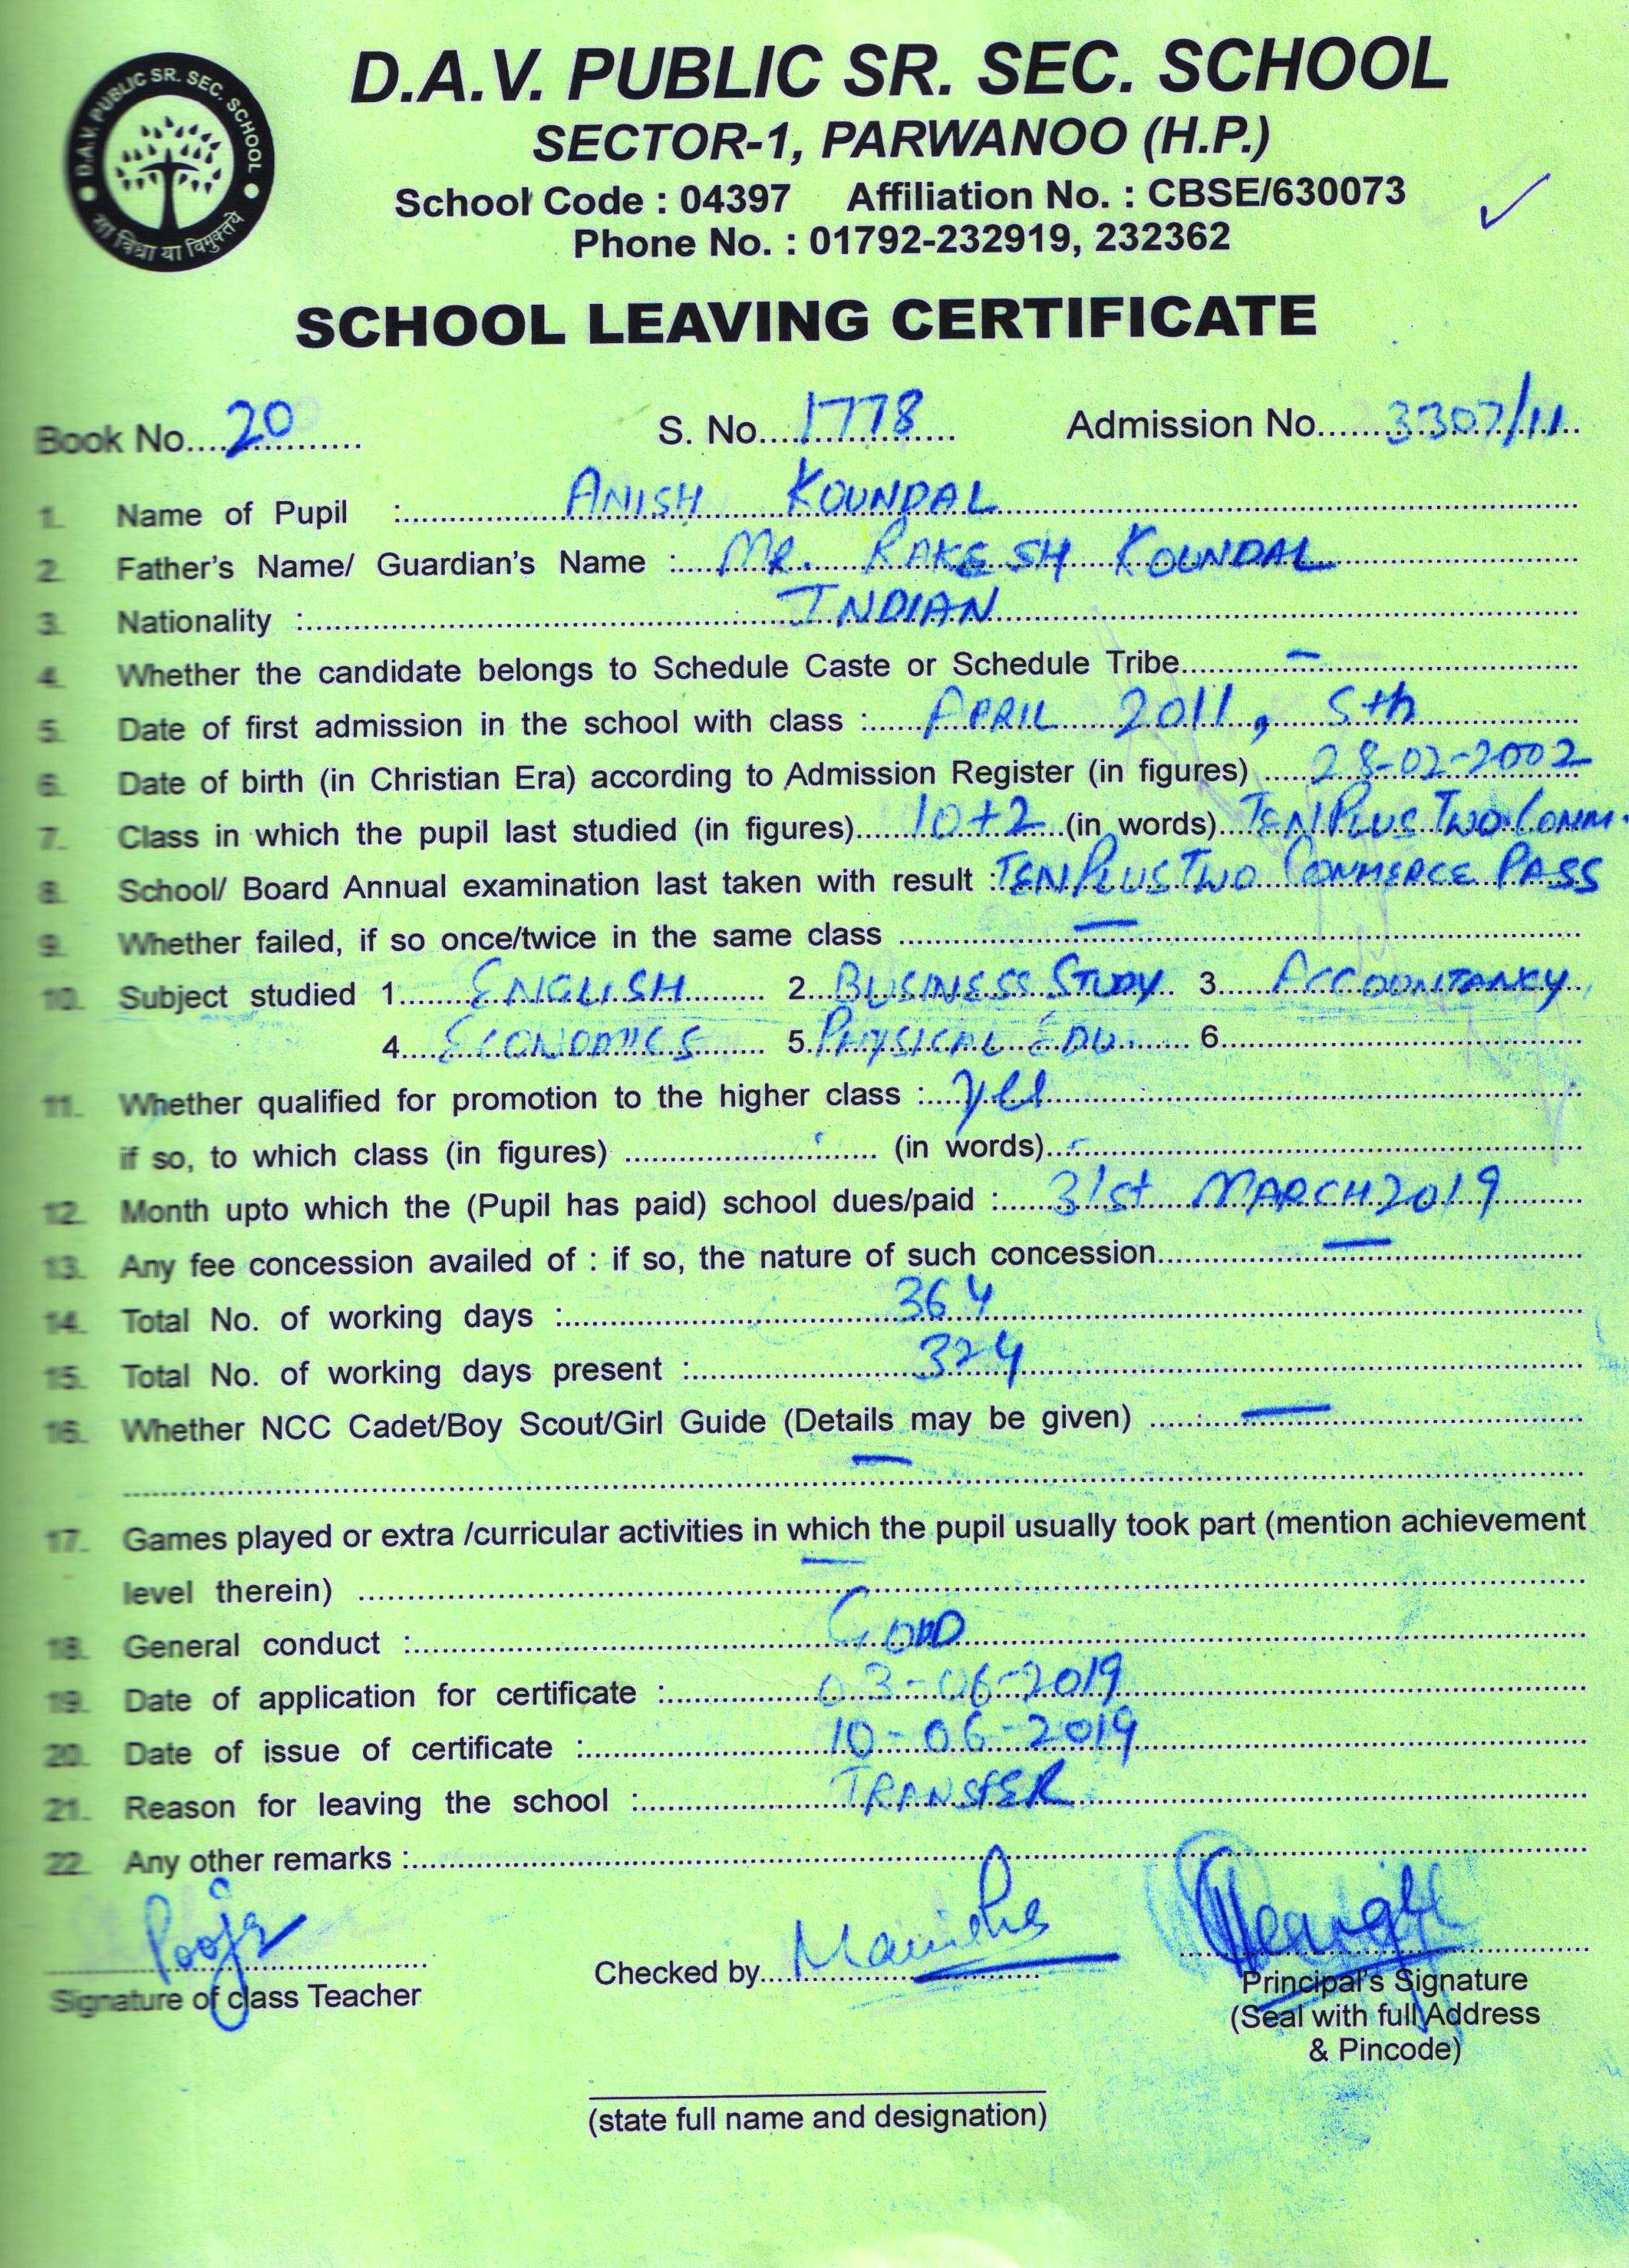 D.A.V. PUBLIC SR. SEC. SCHOOL
D.A.V. PUBLIC SR. SEC. SCHOOL
सा विद्या या विमुक्तये
SECTOR-1, PARWANOO (H.P.)
School Code : 04397 Affiliation No. : CBSE/630073
Phone No. : 01792-232919, 232362
SCHOOL LEAVING CERTIFICATE
Book No....20............ S. No....1778............ Admission No......3307/11..
1. Name of Pupil :........ANISH KOUNDAL........
2. Father's Name/ Guardian's Name :....MR. RAKESH KOUNDAL........
3. Nationality :........INDIAN........
4. Whether the candidate belongs to Schedule Caste or Schedule Tribe........–........
5. Date of first admission in the school with class :......APRIL 2011, 5th........
6. Date of birth (in Christian Era) according to Admission Register (in figures) .....28-02-2002
7. Class in which the pupil last studied (in figures)......10+2....(in words)...TEN PLUS TWO COMM.
8. School/ Board Annual examination last taken with result :TEN PLUS TWO COMMERCE PASS
9. Whether failed, if so once/twice in the same class ........—........
10. Subject studied 1......ENGLISH........ 2...BUSINESS STUDY.. 3......ACCOUNTANCY
4.....ECONOMICS........ 5.PHYSICAL EDU....... 6........
11. Whether qualified for promotion to the higher class :....yes........
if so, to which class (in figures) ........ (in words)........
12. Month upto which the (Pupil has paid) school dues/paid :......31st MARCH 2019........
13. Any fee concession availed of : if so, the nature of such concession........—........
14. Total No. of working days :........364........
15. Total No. of working days present :........324........
16. Whether NCC Cadet/Boy Scout/Girl Guide (Details may be given) ........—........
........—........
17. Games played or extra /curricular activities in which the pupil usually took part (mention achievement
level therein) ........—........
18. General conduct :........GOOD........
19. Date of application for certificate :........03-06-2019........
20. Date of issue of certificate :........10-06-2019........
21. Reason for leaving the school :........TRANSFER........
22. Any other remarks :........
Pooja
Signature of class Teacher
Checked by....Manisha........
Principal's Signature
(Seal with full Address
& Pincode)
(state full name and designation)